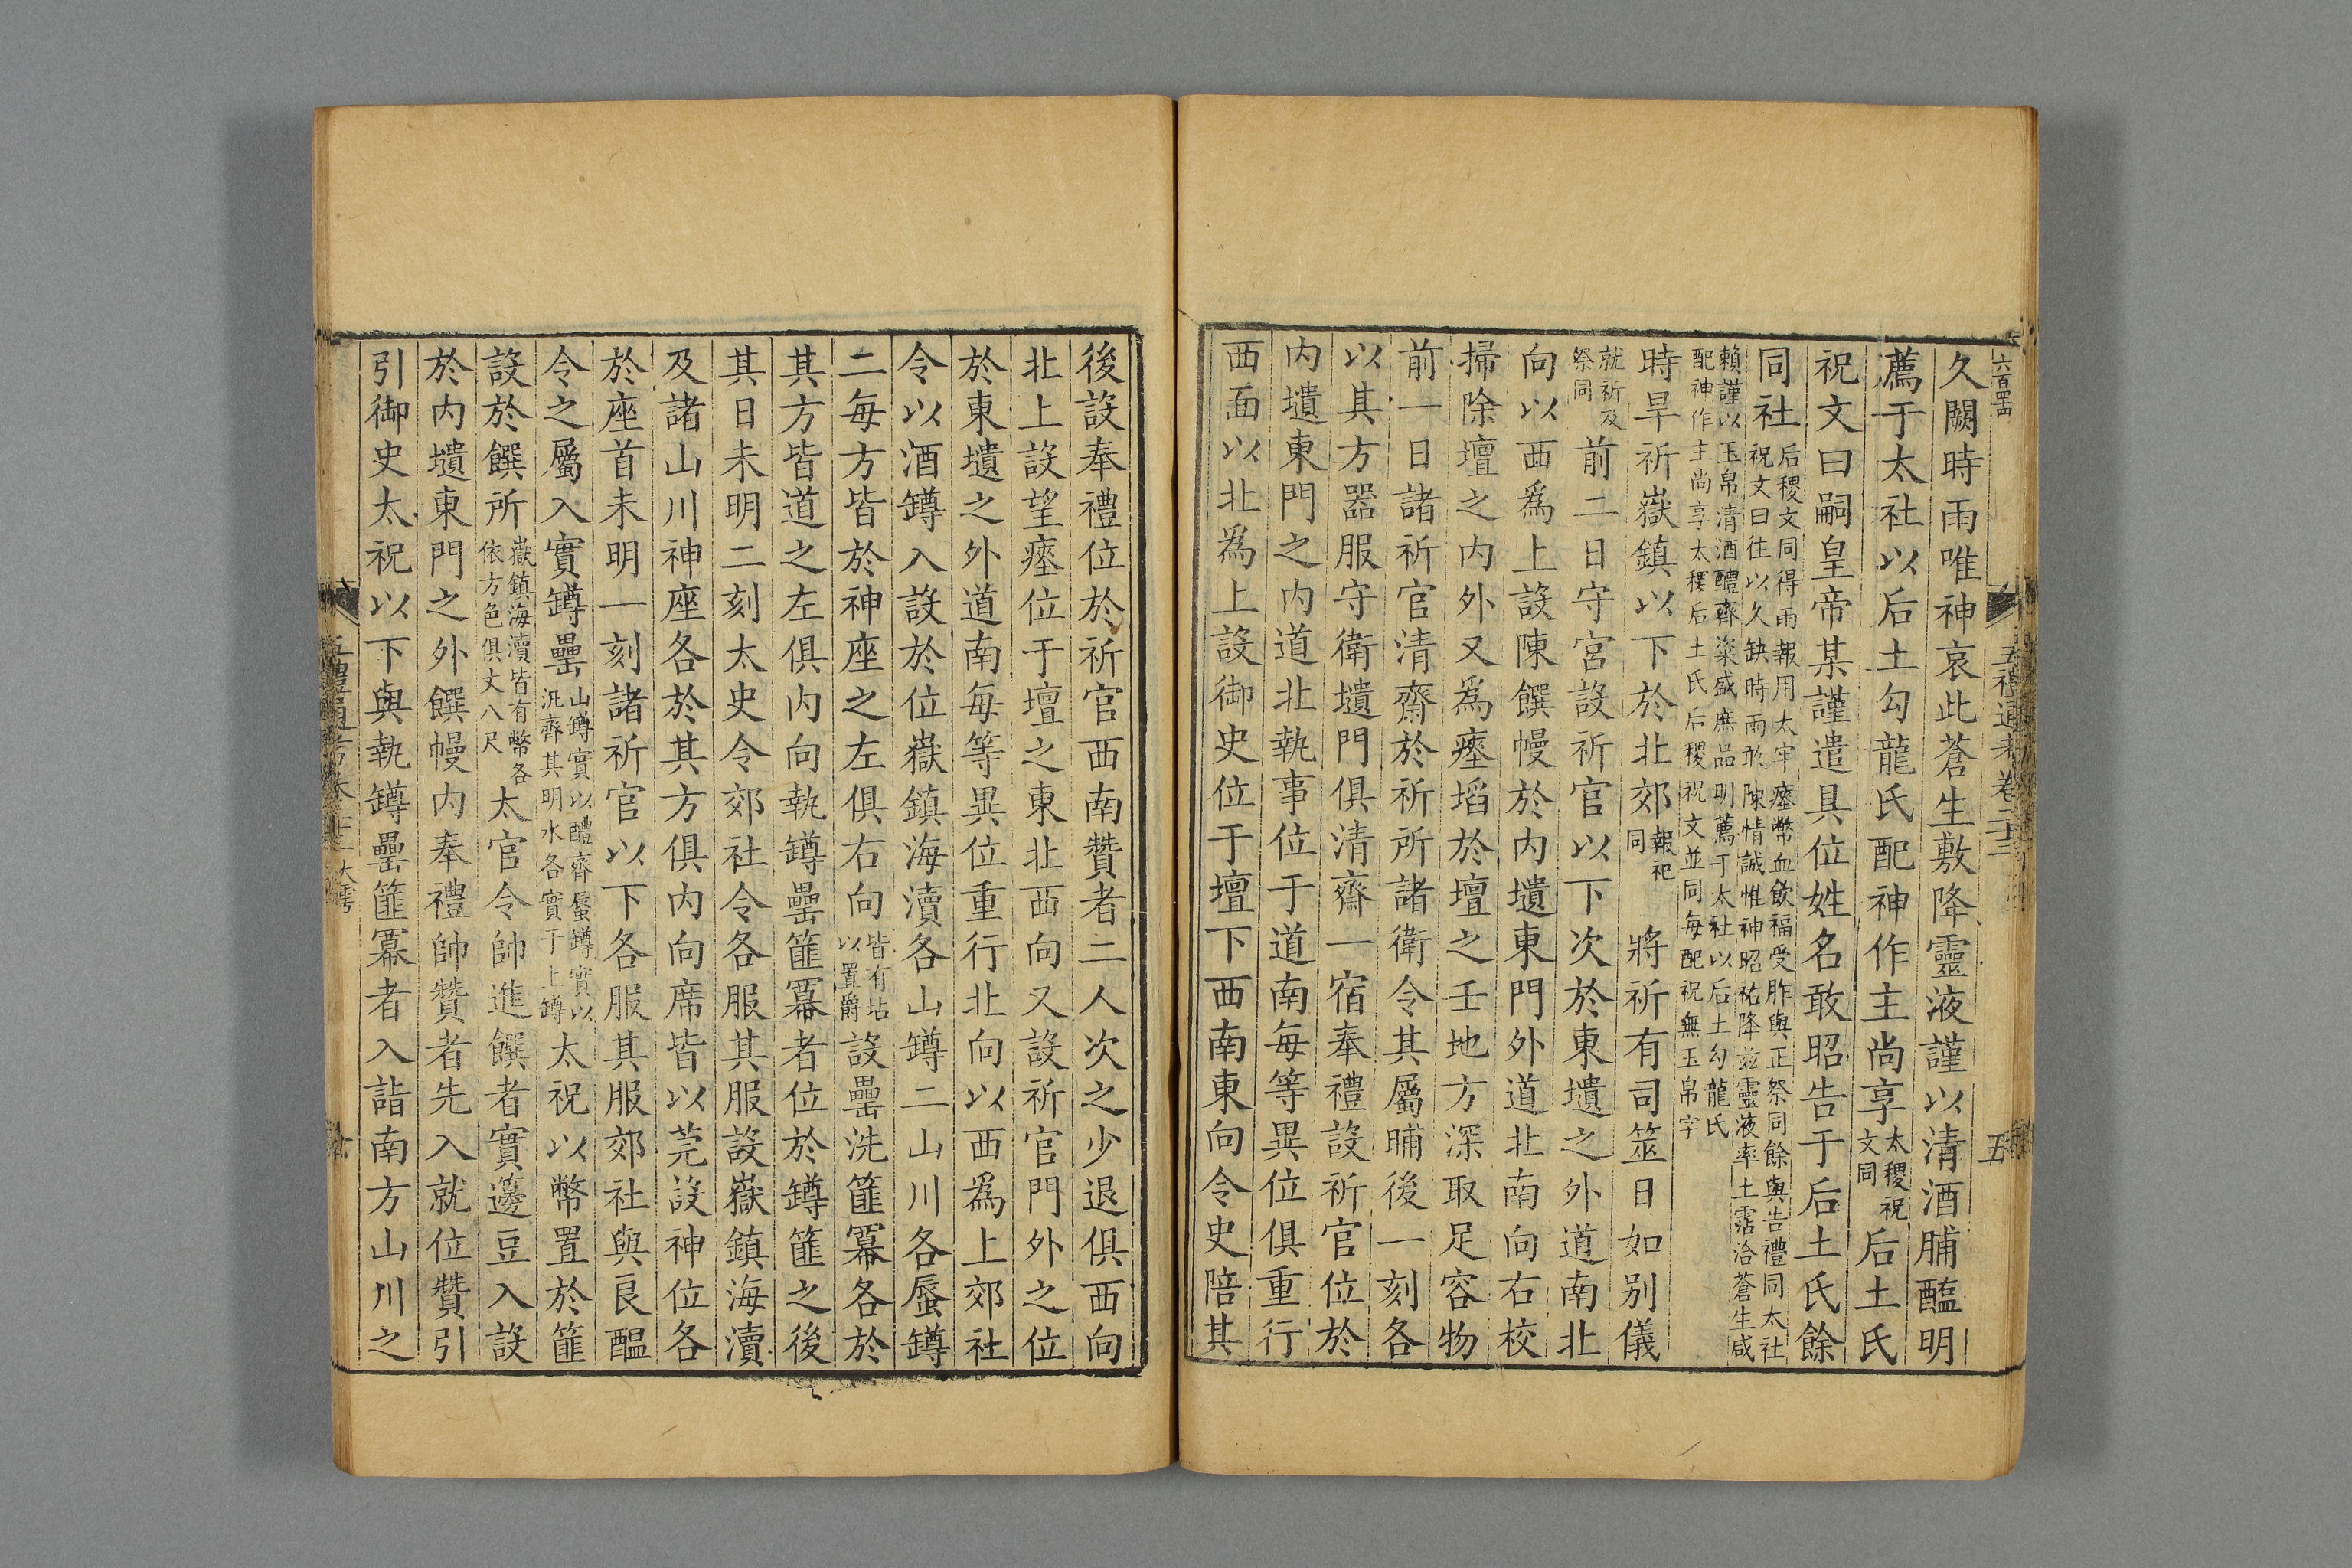 六百四
五禮通考卷二十二
五
久闕時雨唯神哀此蒼生敷降靈液謹以清酒脯醢明
薦于太社以后土勾龍氏配神作主尚享太稷祝文同后土氏
祝文曰嗣皇帝某謹遣具位姓名敢昭告于后土氏餘
同社后稷文同得雨報用太牢瘞幣血飲福受胙與正祭同餘與告禮同太社
祝文曰往以久缺時雨敢陳情誠惟神昭祐降茲靈液率土霑洽蒼生咸
賴謹以玉帛清酒醴齊粢盛庶品明薦于太社以后土勾龍氏
配神作主尚享太稷后土氏后稷祝文並同每配祝無玉帛字
時旱祈嶽鎮以下於北郊報祀同　將祈有司筮日如別儀
就祈及祭同前二日守宮設祈官以下次於東壝之外道南北
向以西爲上設陳饌幔於內壝東門外道北南向右校
掃除壇之內外又爲瘞埳於壇之壬地方深取足容物
前一日諸祈官清齋於祈所諸衛令其屬晡後一刻各
以其方器服守衛壝門俱清齋一宿奉禮設祈官位於
內壝東門之內道北執事位于道南每等異位俱重行
西面以北爲上設御史位于壇下西南東向令史陪其
後設奉禮位於祈官西南贊者二人次之少退俱西向
北上設望瘞位于壇之東北西向又設祈官門外之位
於東壝之外道南每等異位重行北向以西爲上郊社
令以酒罇入設於位嶽鎮海瀆各山罇二山川各蜃罇
二每方皆於神座之左俱右向皆有坫以置爵設罍洗篚冪各於
其方皆道之左俱內向執罇罍篚冪者位於罇篚之後
其日未明二刻太史令郊社令各服其服設嶽鎮海瀆
及諸山川神座各於其方俱內向席皆以莞設神位各
於座首未明一刻諸祈官以下各服其服郊社與良醞
令之屬入實罇罍山罇實以醴齊蜃罇實以汎齊其明水各實于上罇太祝以幣置於篚
設於饌所嶽鎮海瀆皆有幣各依方色俱丈八尺太官令帥進饌者實籩豆入設
於內壝東門之外饌幔內奉禮帥贊者先入就位贊引
引御史太祝以下與執罇罍篚冪者入詣南方山川之
大雩